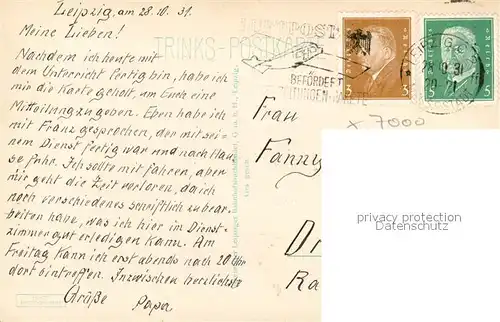 Leipzig, am 28.10.31.
Meine Lieben!
Nachdem ich heute mit
dem Unterricht fertig bin, habe ich
mir die Karte geholt, um Euch eine
Mitteilung zu geben. Eben habe ich
mit Franz gesprochen, der mit sei-
nem Dienst fertig war und nach Hau-
se fuhr. Ich sollte mit fahren, aber
mir geht die Zeit verloren, da ich
noch verschiedenes schriftlich zu bear-
beiten habe, was ich hier im Dienst-
zimmer gut erledigen kann. Am
Freitag kann ich erst abends nach 20 Uhr
dort eintreffen. Inzwischen herzlichste
Grüße Papa
TRINKS-POSTKA
POST
BEFÖRDERT
3 3
5 5
Frau
Fanny
x 7000
privacy protection
Datenschutz